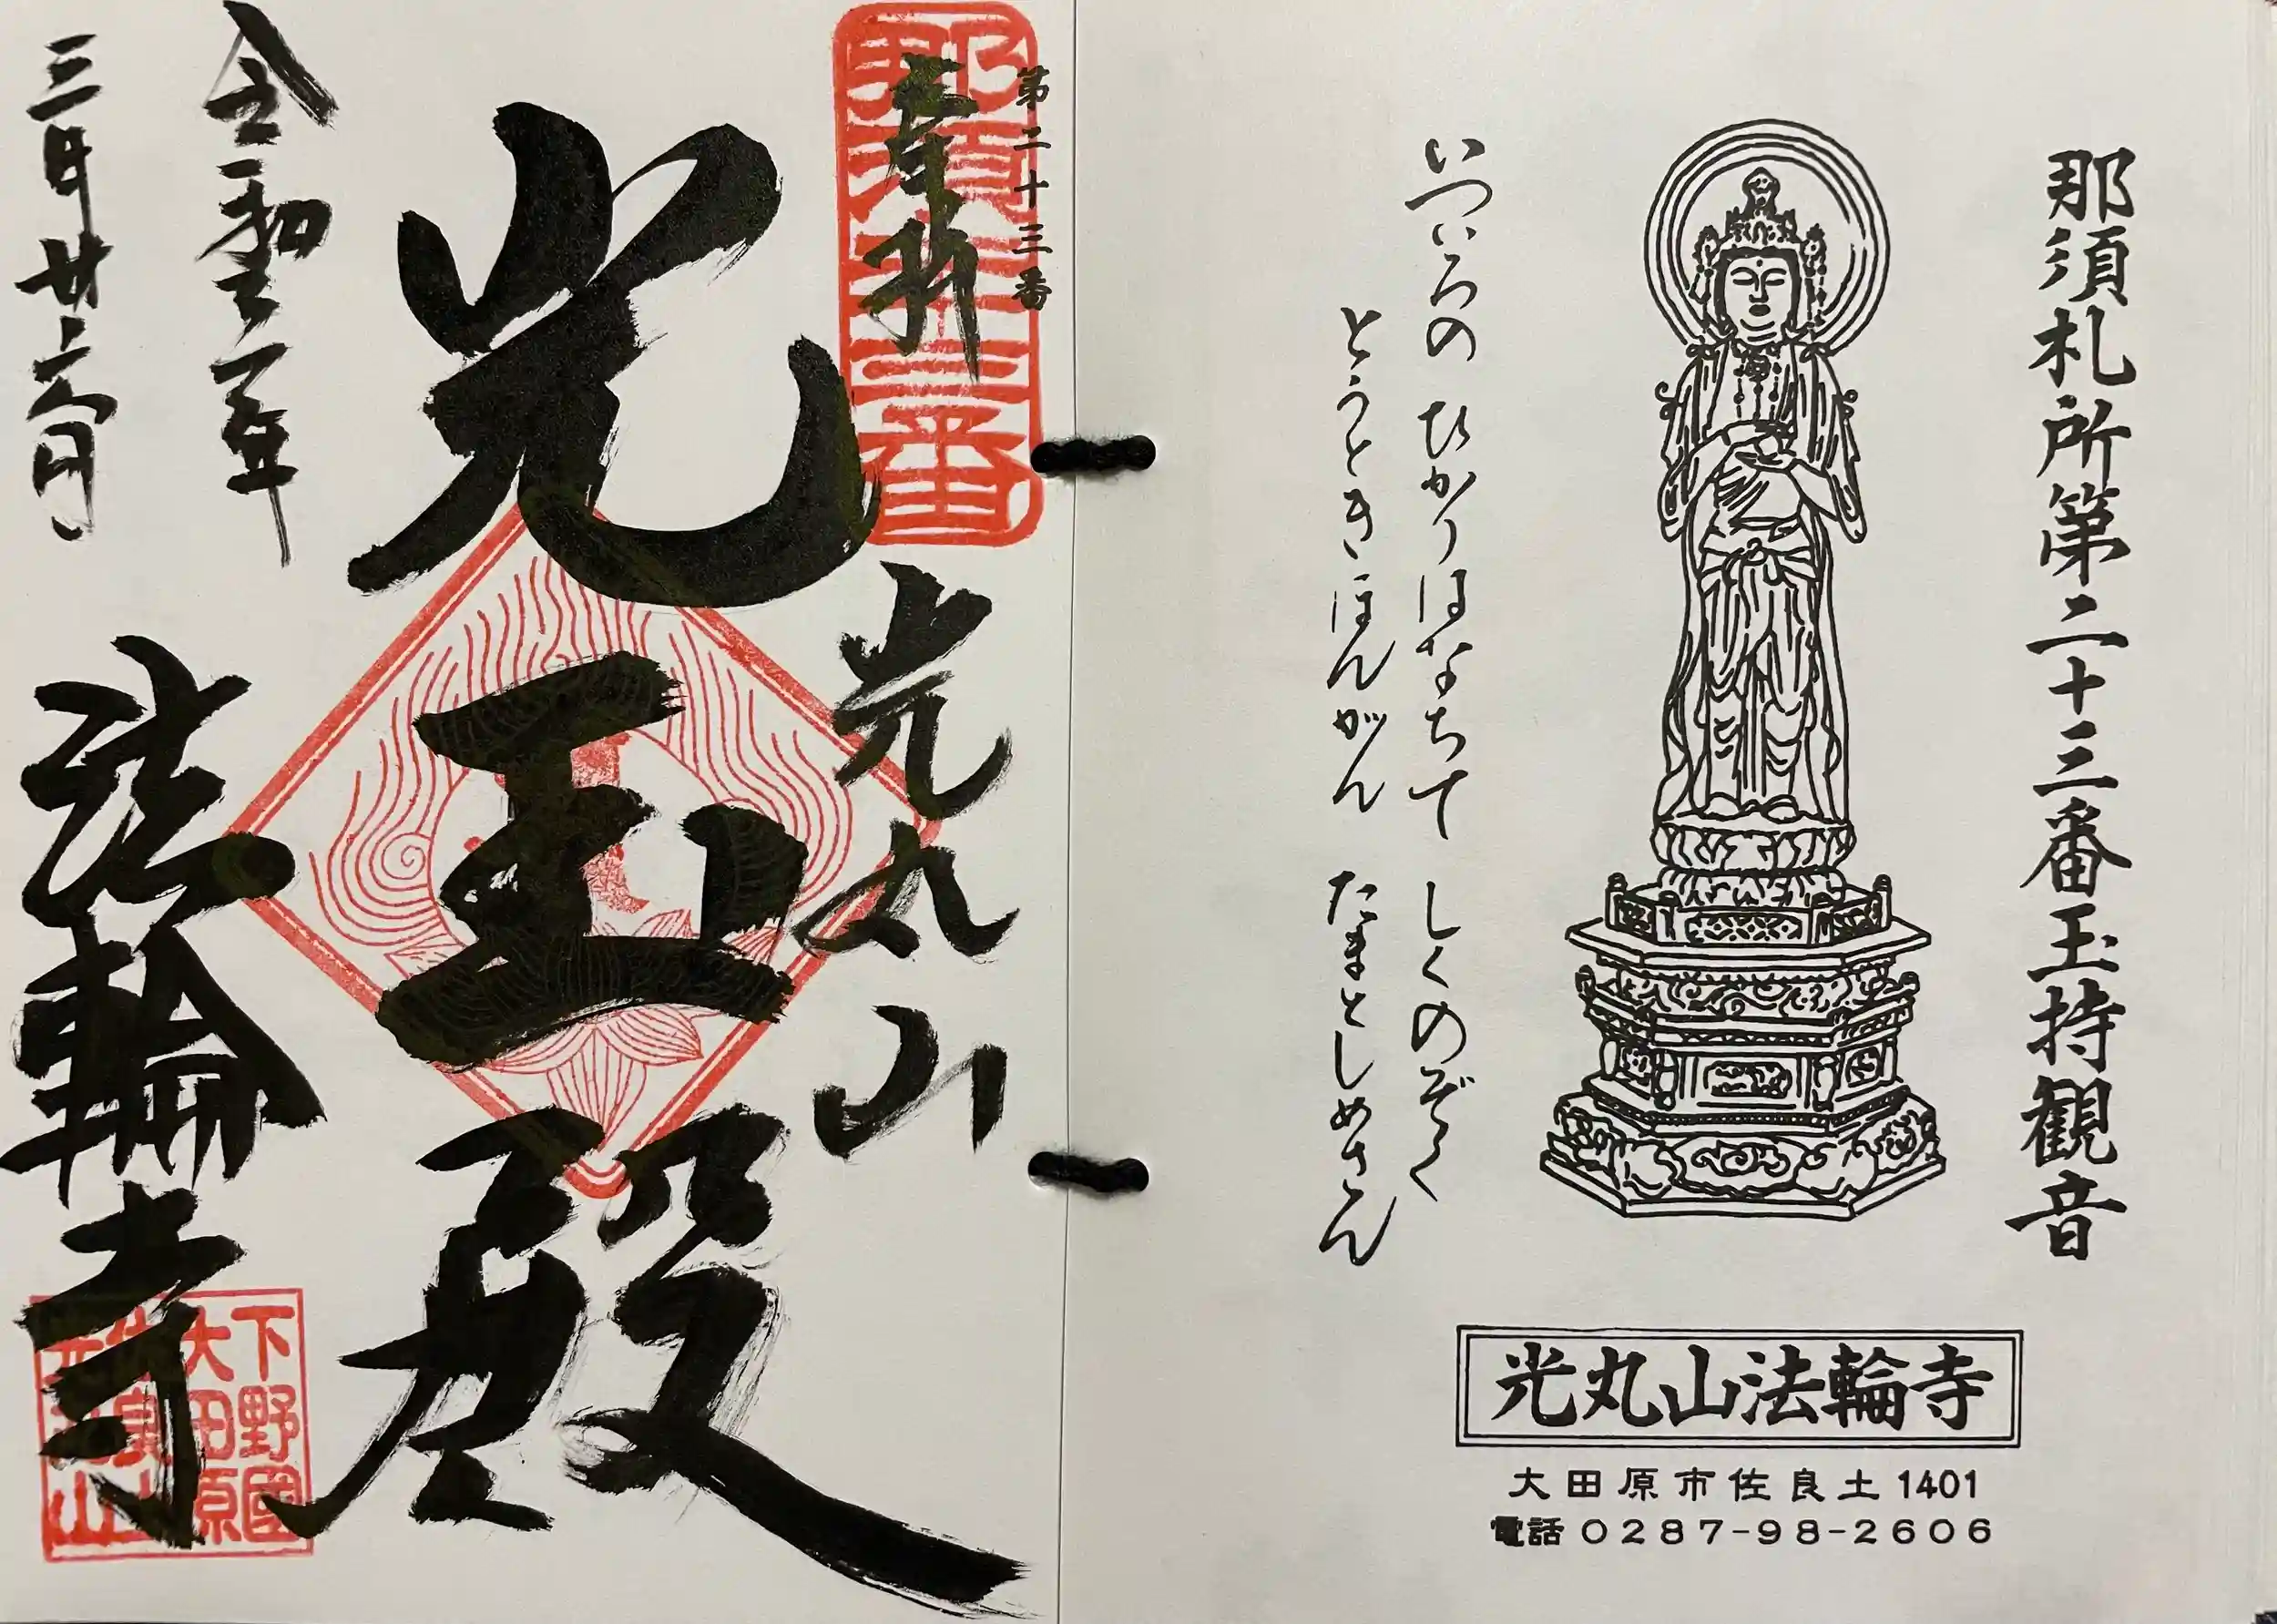 那須札所第二十三番玉持観音
いついろの ひかりはなちて しくのぞく
とうときほんがん たまとしめさん
光丸山法輪寺
大田原市佐良土1401
電話0287-98-2606
第二十三番
奉拝
那須廿三番
光丸山
光玉殿
令和
三月廿六日
法輪寺
下野國
大田原
佐良土
光丸山